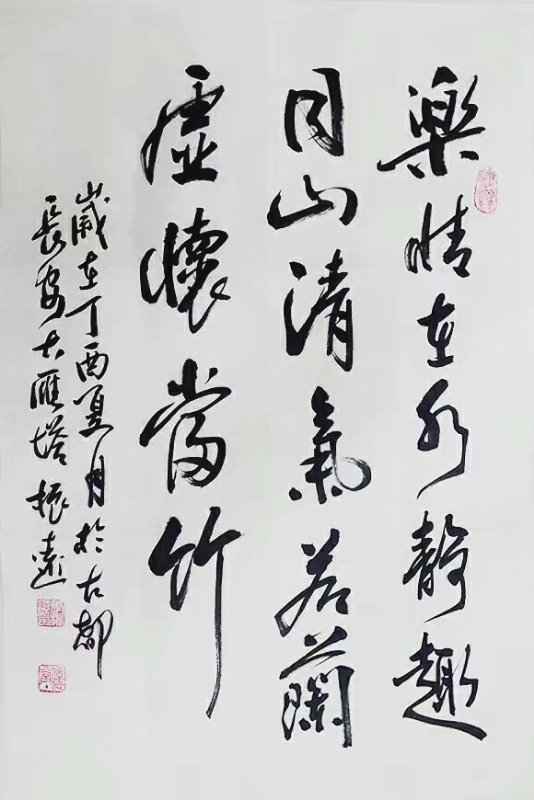 樂情在水靜趣
同山清氣若蘭
虛懷當竹
歲在丁酉夏月於古都
長安大雁塔振遠